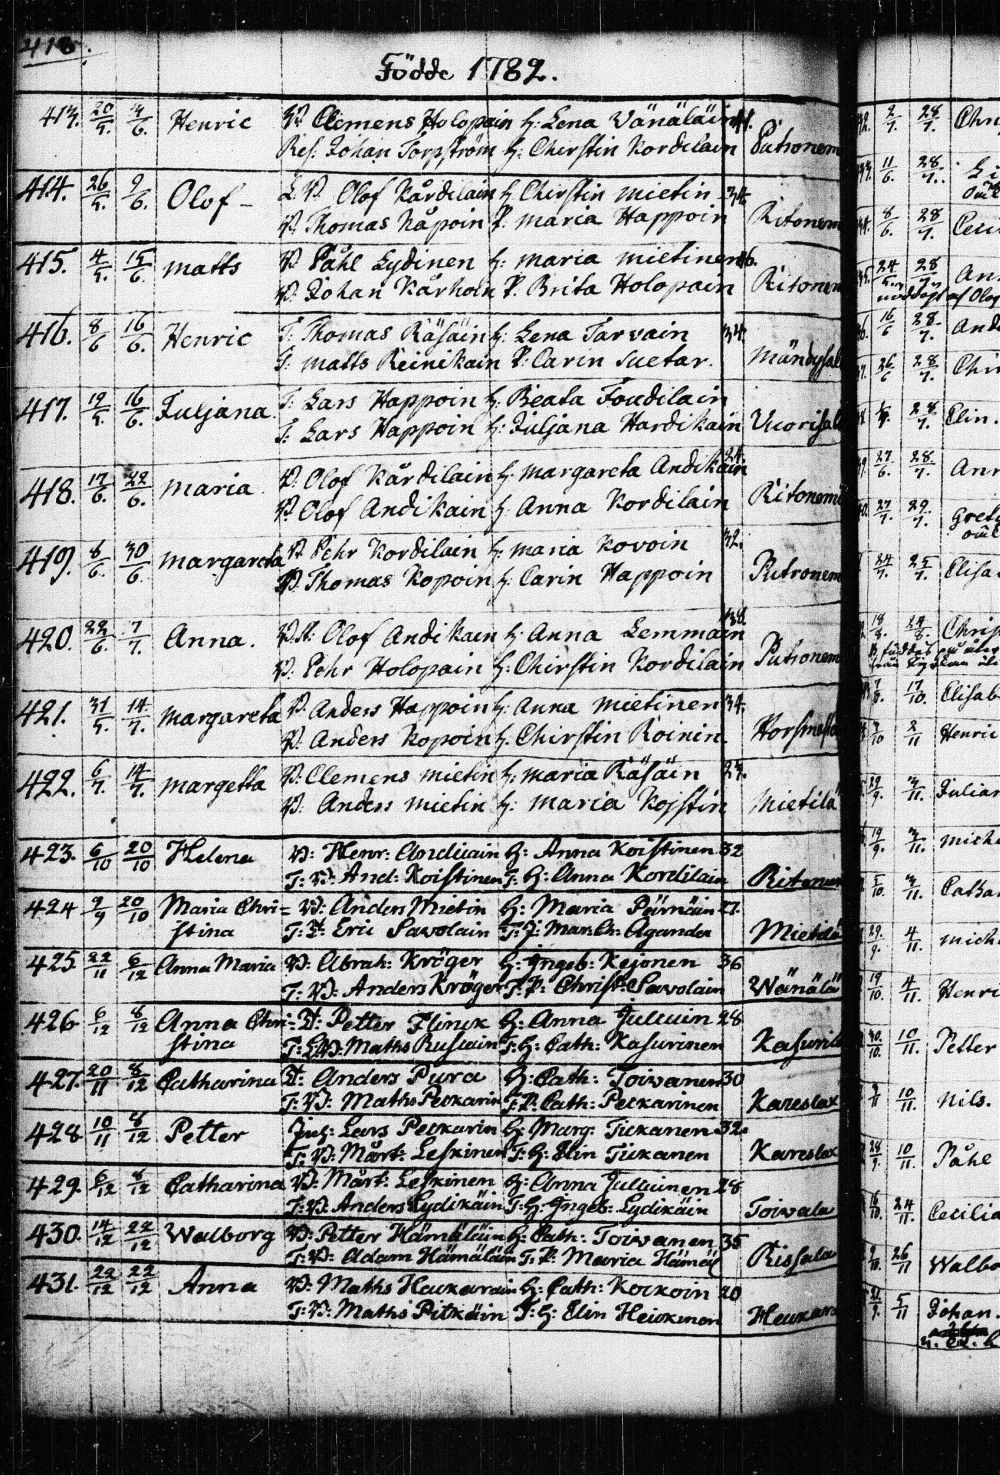 Födde 1782.
413. 20/5. 4/6. Henric V. Clemens Holopain h: Lena Wänäläin 41.
Res. Johan Torpström h: Chirstin Kordilain Putronem
414. 26/5. 9/6. Olof - L.V. Olof Kårdilain h: Chirstin mietin 34.
V. Thomas Kåpoin P. maria Happoin Ritonem
415. 4/5. 15/6. matts V. Påhl Lydinen h: maria mietinen 46.
V. Johan Kårhoin P. Brita Holopain Ritonem
416. 8/6 16/6. Henric T: Thomas Räsäin h: Lena Tarvain 34.
T: matts Reinikain P. Carin Suetar. Mändysal
417. 19/5. 16/6. Juljana. T: Lars Happoin h: Beata Foudilain
T: Lars Happoin h: Juljana Hardikain Vuorisal
418. 17/6. 22/6. maria. V. Olof Kårdilain h: margareta Andikain 24.
V. Olof Andikain h: Anna Kordilain Ritonemi
419. 8/6. 30/6. margareta V. Pehr Kordilain h: maria Kovoin 32.
V. Thomas Kopoin h: Carin Happoin Putronem
420. 22/6. 7/7. Anna. V.A: Olof Andikain h: Anna Lemmain
V. Pehr Holopain h: Chirstin Kordilain Putronem
421. 31/5. 14/7. margareta V. Anders Happoin h: Anna mietinen 34.
V. Anders Kopoin h: Chirstin Roinin.
422. 6/7. 14/7. margetta V: Clemens mietin h: maria Räsäin 27.
V. Anders mietin h: maria Kojstin mietilä
423. 6/10 20/10 Helena V: Henr: Andicain H: Anna Koistinen 32
T: V: And: Koistinen T: H: Anna Kordilain Ritonem
424 9/9 20/10 Maria Chri= V: Anders Mietin H: Maria Pärnäin 27.
stina T: D: Eric Savolain T: J: Mar: Chr: Agander Mietilä
425. 22/11 6/12 Anna Maria V: Abrah: Kröger H: Ingeb: Kejonen 36
T: V: Anders Kröger T: P: Christ: Savolain Wänälä
426 6/12 8/12 Anna Chri= D: Petter Flinck H: Anna Juluin 28
stina T: V: Maths Ruscain T: H: Cath: Kasurinen Kasuril
427. 20/11 8/12 Catharina D: Anders Pura H: Cath: Toivanen 30
T: V: Maths Peckarin T: P: Cath: Peckarinen Kareslax
428 10/11 8/12 Petter Inh: Lars Peckarin H: Marg: Tickanen 32.
T: V: Mårt: Leskinen T: H: Elin Tickanen Kareslax
429. 6/12 8/12 Catharina V: Mårt: Leskinen H: Anna Juluinen 28
T: V: Anders Lydikäin T: H: Ingeb: Lydikäin Toivala
430. 14/12 22/12 Walborg V: Petter Hämäläin H: Cath: Toivanen 35
T: V: Adam Hämäläin T: P: Maria Hämäl Rissala
431. 22/12 22/12 Anna V: Maths Hackarain H: Cath: Kockoin 20
T: V: Maths Pitkäin T: H: Elin Heickinen Hackara
2/7. 28/7. Chri
11/6. 28/7.
8/6. 28/7. Ceci
24/5. 28/7. An
af Olof
16/6 28/7. And
26/6 28/7. Chri
28/7. Elin.
27/6. 28/7. Ann
27/7. 29/7. Greta
24/7. 25/7. Elisa
18/8. Chris
17/10. Elisab
2/11 Henric
29/9. 3/11. Julian
19/9. 3/11. mich
5/10. 3/11. Catha
29/9. 4/11 mich
19/10. 4/11. Henri
30/10. 10/11. Petter
10/11 Nils.
28/9. 10/11. Påhl
24/11. Cecilia
26/11 Walbo
5/11 Johan.